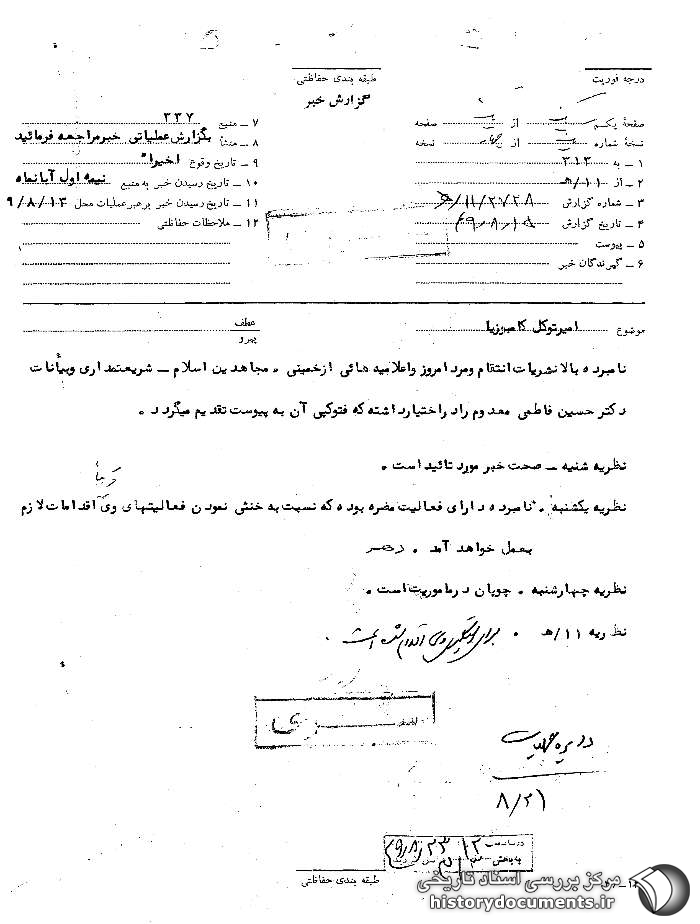 درجه فوریت
طبقه بندی حفاظتی
گزارش خبر
صفحهٔ یکم از صفحه
نسخهٔ شماره از چهار نسخه
۱ ــ به ۳۱۳
۲ ــ از ۱۱/ه
۳ ــ شماره گزارش
۴ ــ تاریخ گزارش
۵ ــ پیوست
۶ ــ گیرندگان خبر
۷ ــ منبع ۲۳۷
۸ ــ منشأ بگزارش عملیاتی خبر مراجعه فرمائید
۹ ــ تاریخ وقوع اخیرا"
۱۰ ــ تاریخ رسیدن خبر به منبع نیمه اول آبانماه
۱۱ ــ تاریخ رسیدن خبر برهبر عملیات محل ۹/۸/۱۳
۱۲ ــ ملاحظات حفاظتی
موضوع امیر توکل کامبوزیا
عطف
پیرو
نامبرده بالا نشریات انتقام ومرد امروز واعلامیه هائی ازخمینی ۰ مجاهدین اسلام ــ شریعتمداری وبیانات
دکتر حسین فاطمی معدوم رادر اختیار داشته که فتوکپی آن به پیوست تقدیم میگردد ۰
نظریه شنبه ــ صحت خبر مورد تائید است ۰
نظریه یکشنبه ۰ نامبرده دارای فعالیت مضره بوده که نسبت به خنثی نمودن فعالیتهای وی اقدامات لازم
بعمل خواهد آمد ۰
نظریه چهارشنبه ۰ چوپان در ماموریت است ۰
نظریه ۱۱/ه ۰ برای وی اقدام شده است ۰
دایره عملیات
۸/۲۱
طبقه بندی حفاظتی
مرکز بررسی اسناد تاریخی
historydocuments.ir